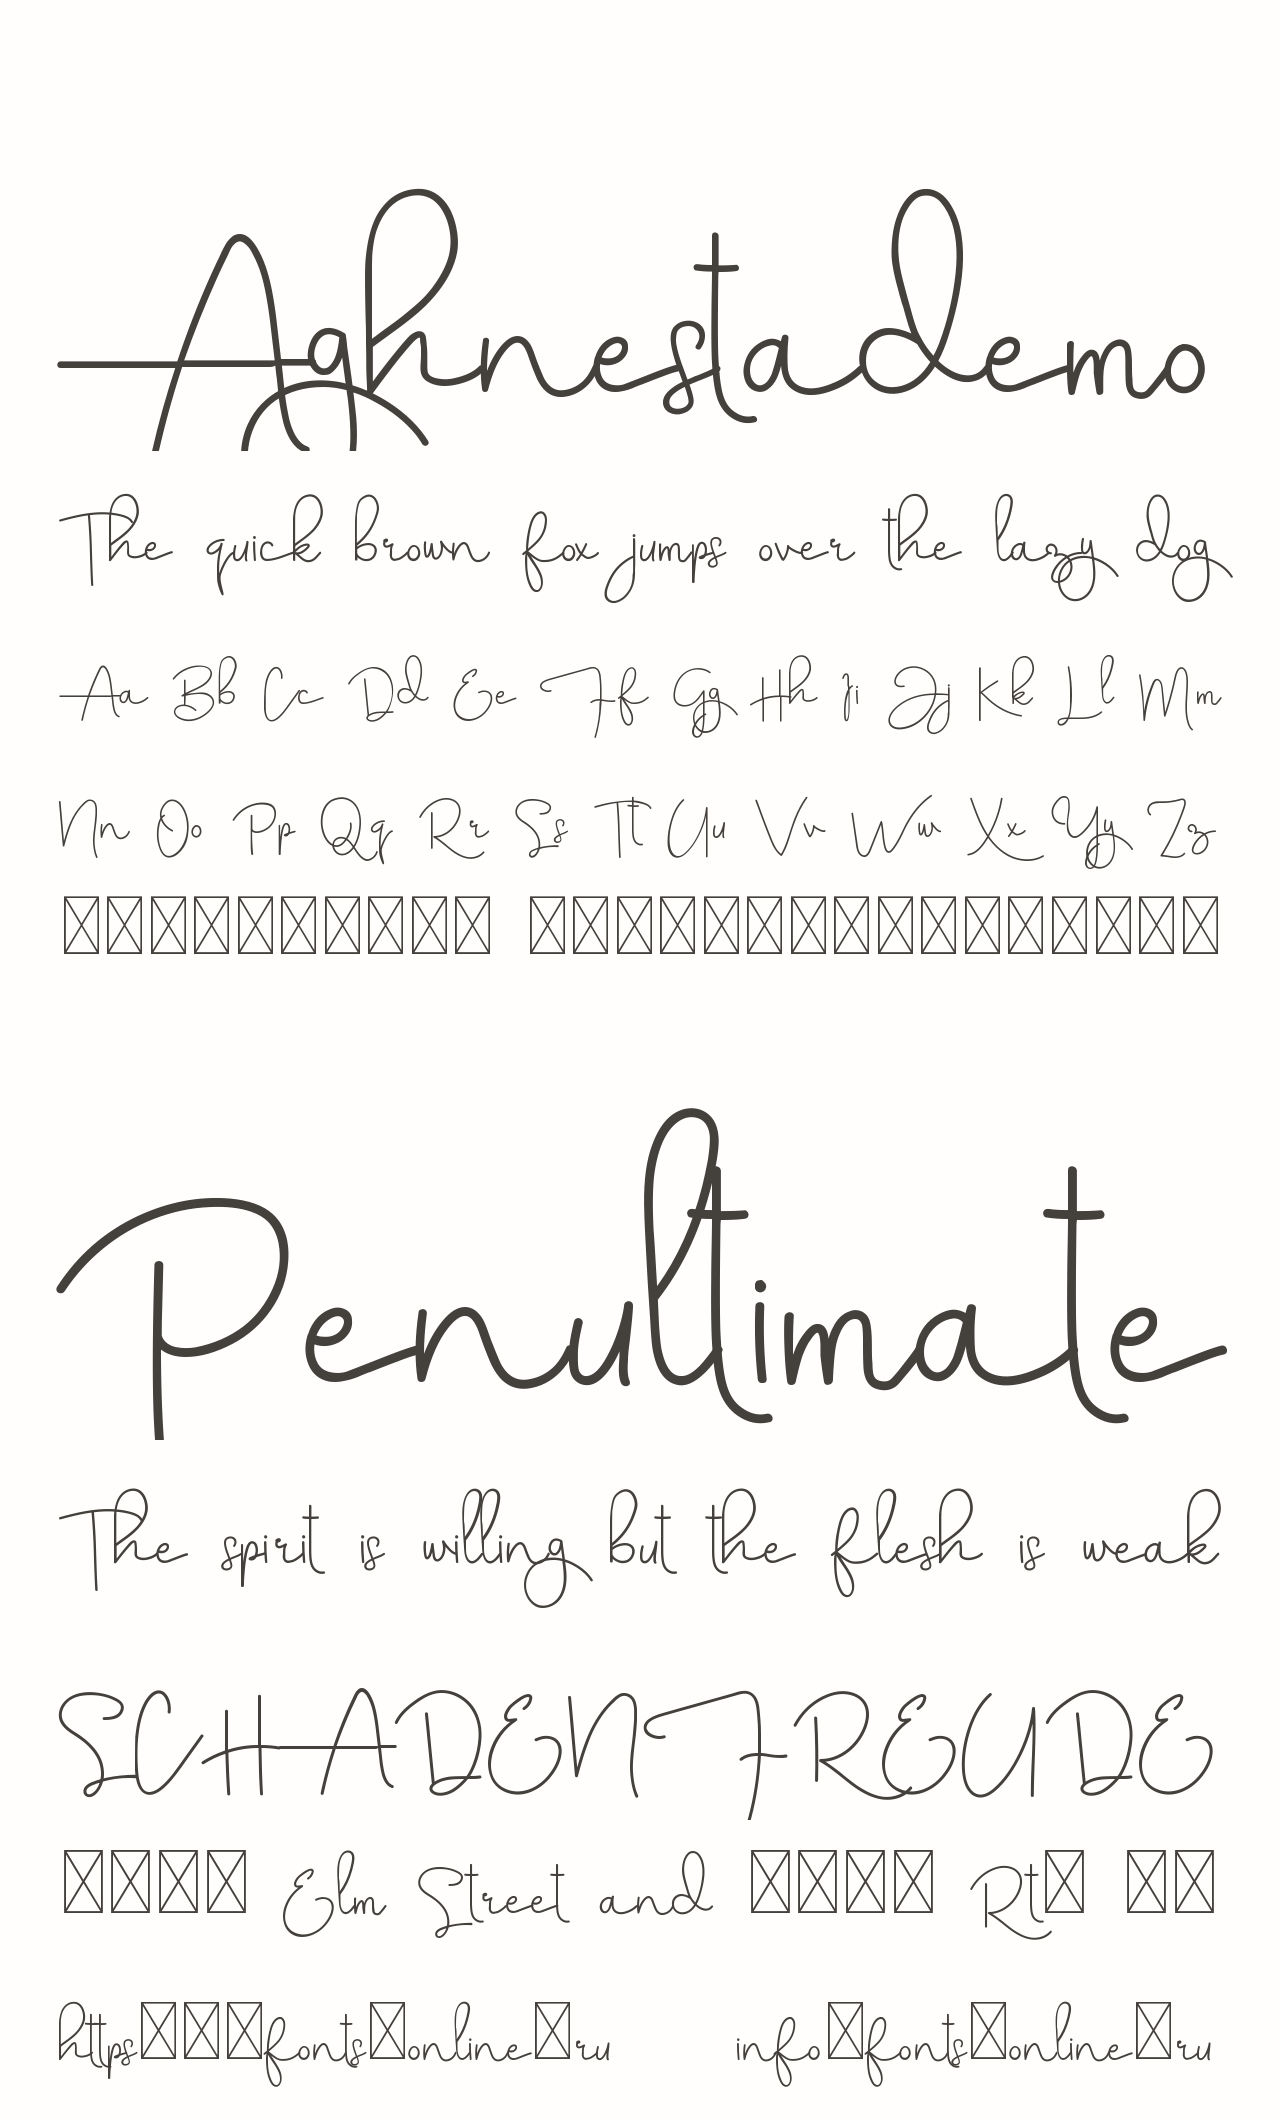 Aghnestademo
The quick brown fox jumps over the lazy dog
Aa Bb Cc Dd Ee Ff Gg Hh Ii Jj Kk Ll Mm
Nn Oo Pp Qq Rr Ss Tt Uu Vv Ww Xx Yy Zz
Penultimate
The spirit is willing but the flesh is weak
SCHADENFREUDE
Elm Street and Rt
https fonts online ru info fonts online ru